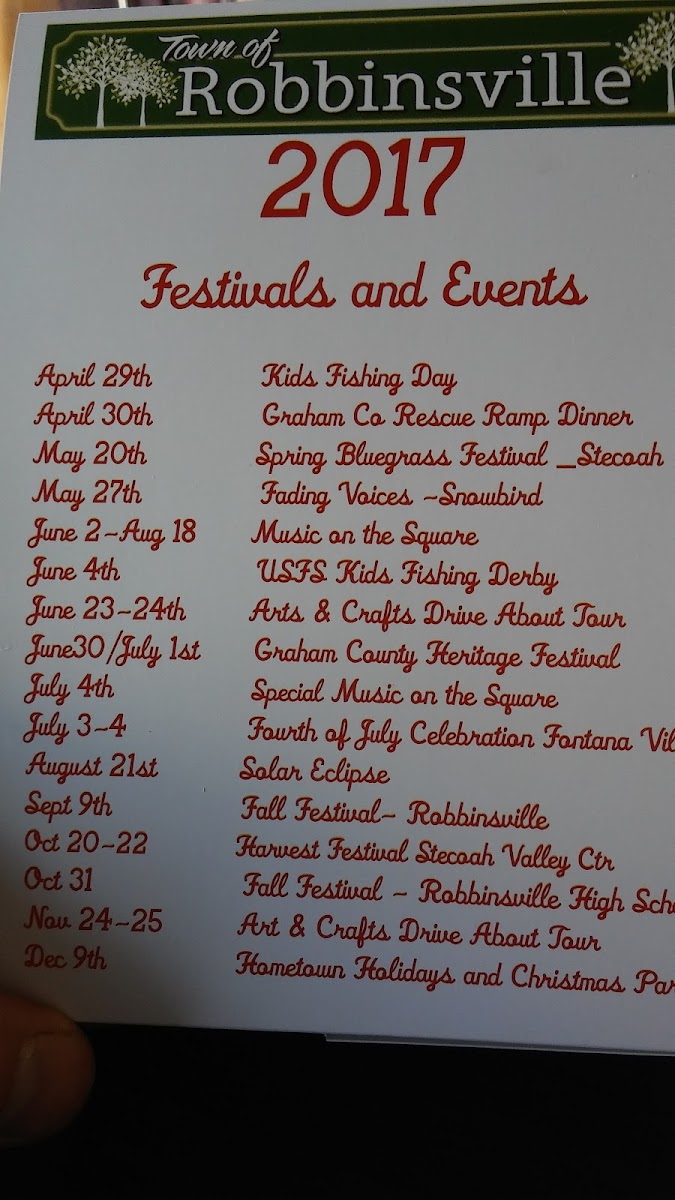 Town of
Robbinsville
2017
Festivals and Events
April 29th Kids Fishing Day
April 30th Graham Co Rescue Ramp Dinner
May 20th Spring Bluegrass Festival _Stecoah
May 27th Fading Voices ~Snowbird
June 2~Aug 18 Music on the Square
June 4th USFS Kids Fishing Derby
June 23~24th Arts & Crafts Drive About Tour
June30/July 1st Graham County Heritage Festival
July 4th Special Music on the Square
July 3~4 Fourth of July Celebration Fontana Vil
August 21st Solar Eclipse
Sept 9th Fall Festival~ Robbinsville
Oct 20~22 Harvest Festival Stecoah Valley Ctr
Oct 31 Fall Festival ~ Robbinsville High Sch
Nov 24~25 Art & Crafts Drive About Tour
Dec 9th Hometown Holidays and Christmas Par